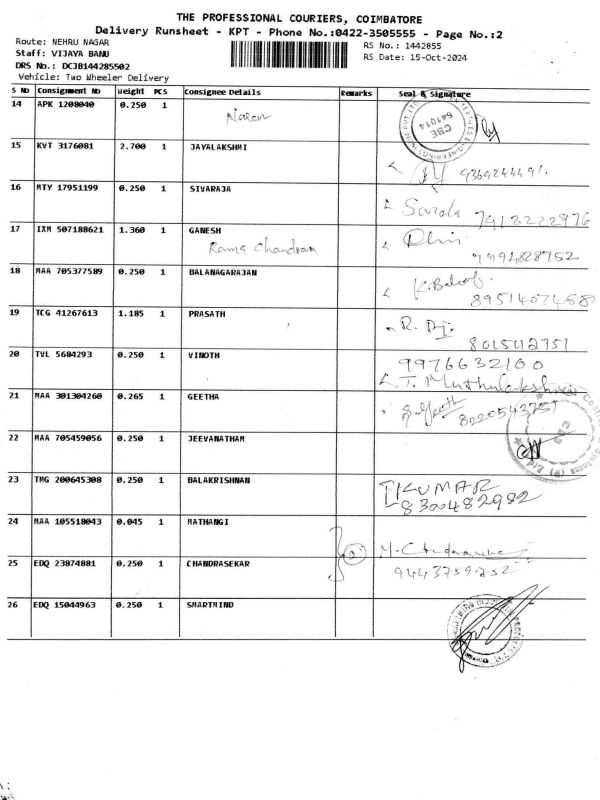 THE PROFESSIONAL COURIERS, COIMBATORE
Delivery Runsheet - KPT - Phone No.:0422-3505555 - Page No.:2
Route: NEHRU NAGAR
RS No.: 1442855
Staff: VIJAYA BANU
RS Date: 15-Oct-2024
DRS No.: DCJB144285502
Vehicle: Two Wheeler Delivery
S No Consignment No Weight PCS Consignee Details Remarks Seal & Signature
14 APK 1208040 0.250 1
Naren
CBE 641014
15 KVT 3176081 2.700 1 JAYALAKSHMI
9369244491.
16 MTY 17951199 0.250 1 SIVARAJA
Sarala 7913222976
17 IXM 507188621 1.360 1 GANESH
Rama Chandran
9994828752
18 MAA 705377589 0.250 1 BALANAGARAJAN
8951407468
19 TCG 41267613 1.185 1 PRASATH
8015112751
20 TVL 5684293 0.250 1 VINOTH
9976632100
T. Muthulakshmi
21 MAA 301304260 0.265 1 GEETHA
8220543751
22 MAA 705459056 0.250 1 JEEVANATHAM
23 TMG 200645308 0.250 1 BALAKRISHNAN
KUMAR
8300482982
24 MAA 105518043 0.045 1 MATHANGI
25 EDQ 23874881 0.250 1 CHANDRASEKAR
9443759252
26 EDQ 15044963 0.250 1 SMARTMIND